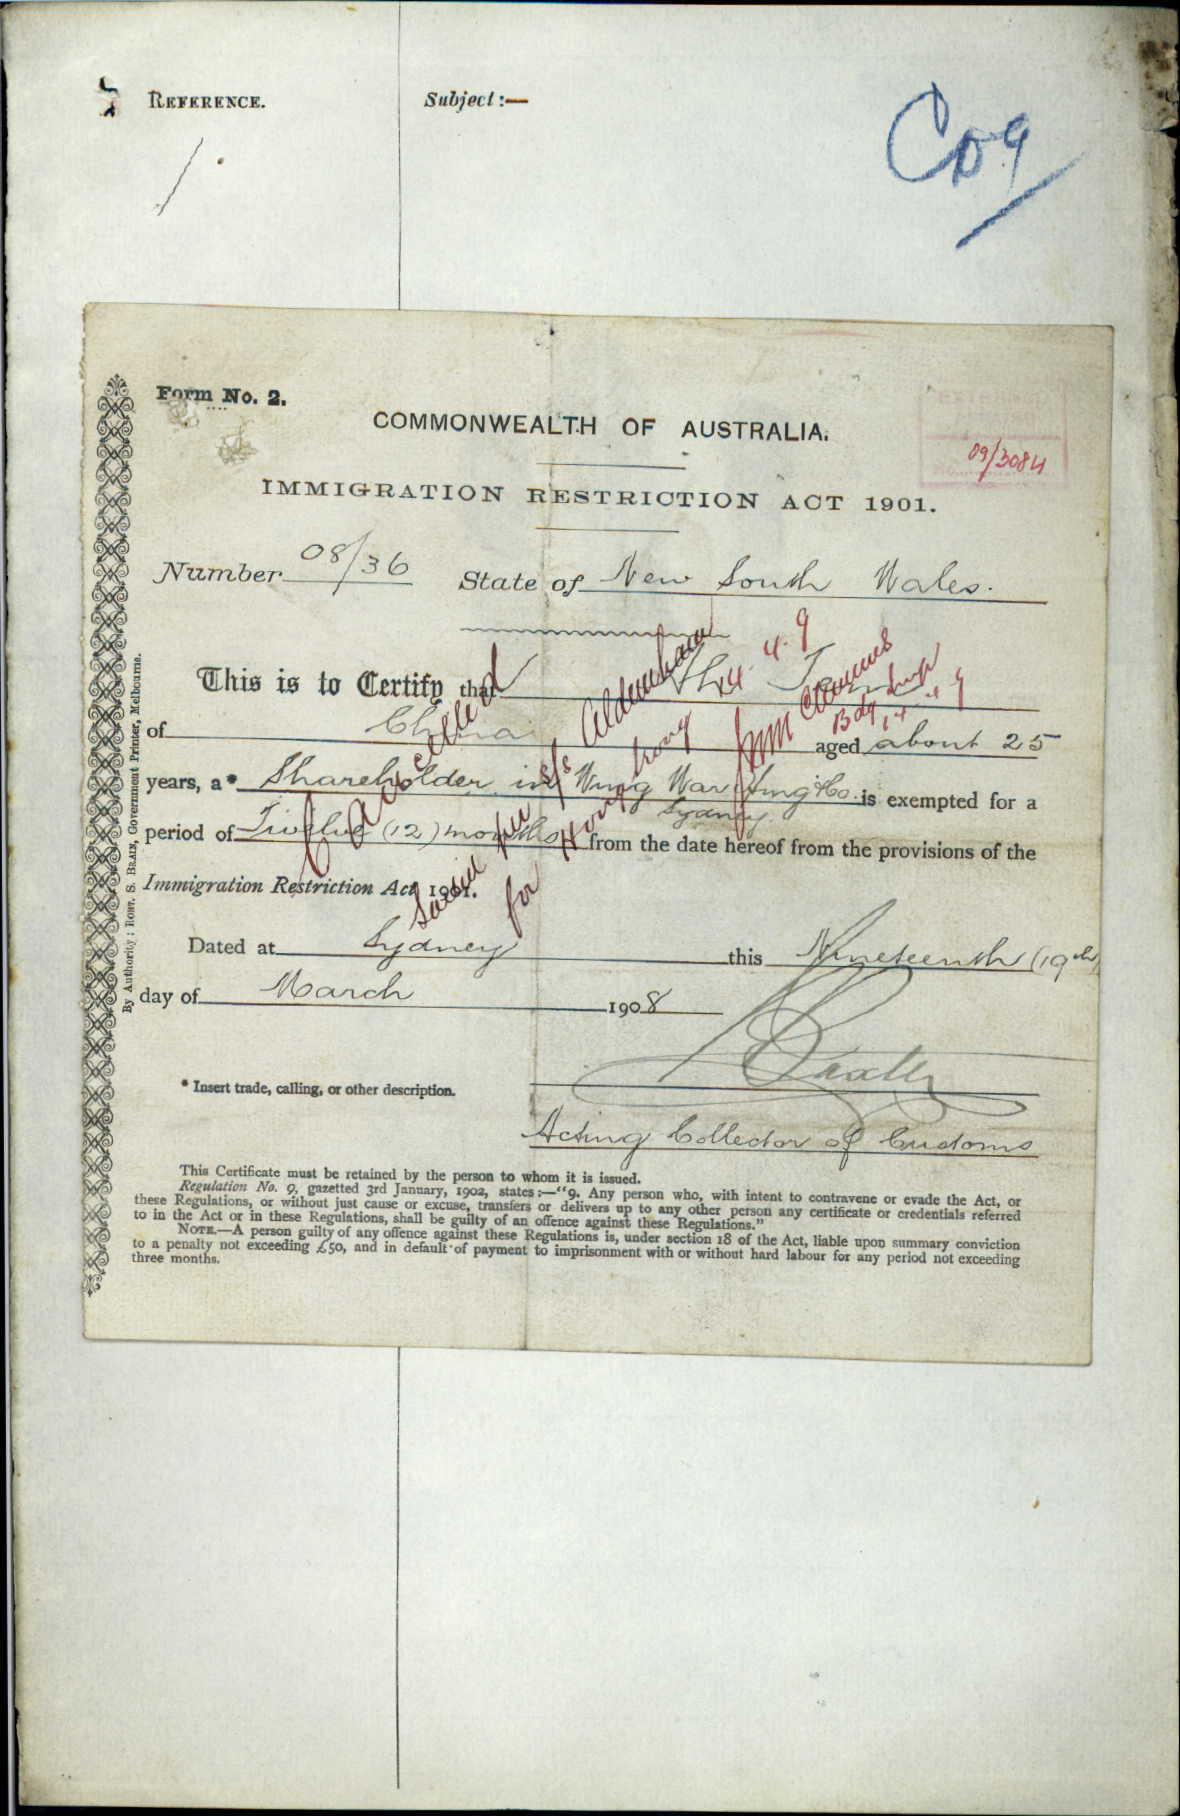 REFERENCE.
Subject:—
Form No. 2.
COMMONWEALTH OF AUSTRALIA.
09/3084
IMMIGRATION RESTRICTION ACT 1901.
Number 08/36 State of New South Wales.
This is to Certify that
of China aged about 25
years, a* Shareholder in Wing War Hing & Co. is exempted for a
Sydney.
period of Twelve (12) months from the date hereof from the provisions of the
Immigration Restriction Act 1901.
Dated at Sydney this Nineteenth (19th)
day of March 1908
* Insert trade, calling, or other description.
Acting Collector of Customs
This Certificate must be retained by the person to whom it is issued.
Regulation No. 9, gazetted 3rd January, 1902, states:—"9. Any person who, with intent to contravene or evade the Act, or
these Regulations, or without just cause or excuse, transfers or delivers up to any other person any certificate or credentials referred
to in the Act or in these Regulations, shall be guilty of an offence against these Regulations."
NOTE.—A person guilty of any offence against these Regulations is, under section 18 of the Act, liable upon summary conviction
to a penalty not exceeding £50, and in default of payment to imprisonment with or without hard labour for any period not exceeding
three months.
By Authority: ROBT. S. BRAIN, Government Printer, Melbourne.
Cancelled
Sailed per s/s Aldenham 14.4.9
for Hong Kong